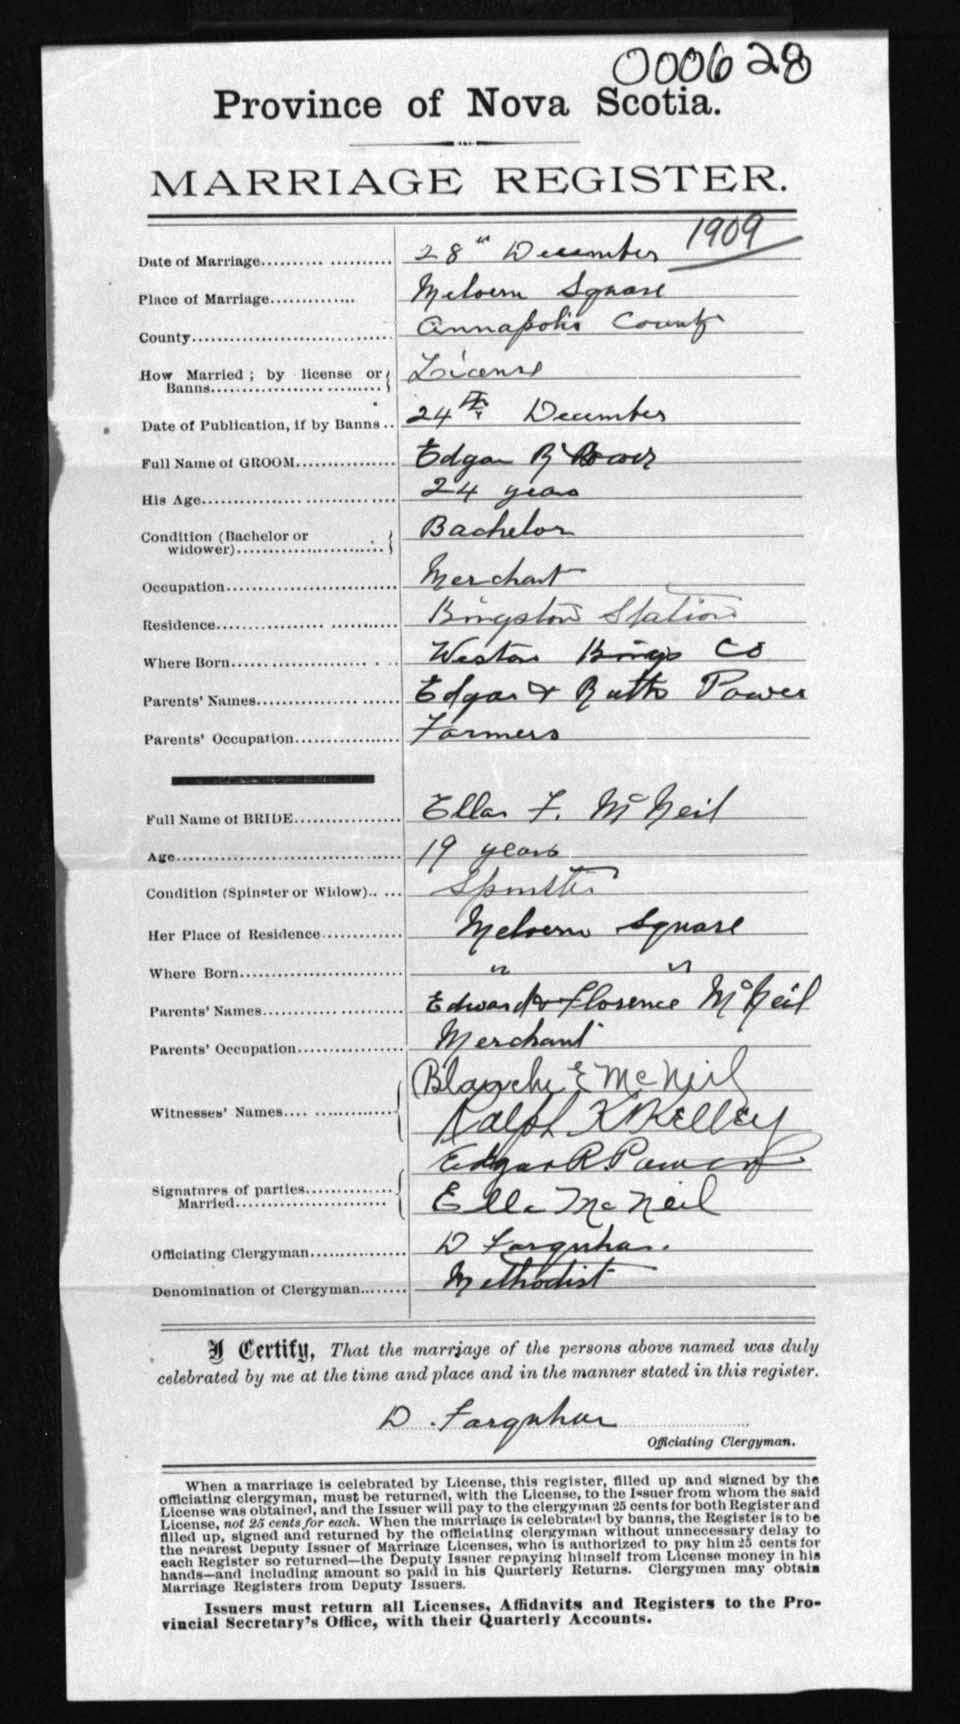 000628
Province of Nova Scotia.
MARRIAGE REGISTER.
1909
Date of Marriage.................... 28th December
Place of Marriage.............. Melvern Square
County................................ Annapolis County
How Married ; by license or
Banns........................... License
Date of Publication, if by Banns .. 24th December
Full Name of GROOM............... Edgar R Power
His Age............................... 24 years
Condition (Bachelor or
widower)....................... Bachelor
Occupation............................ Merchant
Residence............................ Kingston Station
Where Born......................... Weston Kings Co
Parents' Names...................... Edgar & Ruth Power
Parents' Occupation................ Farmers
Full Name of BRIDE................. Ella F. McNeil
Age.................................... 19 years
Condition (Spinster or Widow)..... Spinster
Her Place of Residence............ Melvern Square
Where Born.......................... " "
Parents' Names...................... Edward & Florence McNeil
Parents' Occupation................ Merchant
Blanche E McNeil
Witnesses' Names.................. Ralph K Kelley
Edgar R Power
Signatures of parties..............
Married....................... Ella McNeil
Officiating Clergyman.............. D Farquhar.
Denomination of Clergyman........ Methodist
I Certify, That the marriage of the persons above named was duly
celebrated by me at the time and place and in the manner stated in this register.
D. Farquhar
Officiating Clergyman.
When a marriage is celebrated by License, this register, filled up and signed by the
officiating clergyman, must be returned, with the License, to the Issuer from whom the said
License was obtained, and the Issuer will pay to the clergyman 25 cents for both Register and
License, not 25 cents for each. When the marriage is celebrated by banns, the Register is to be
filled up, signed and returned by the officiating clergyman without unnecessary delay to
the nearest Deputy Issuer of Marriage Licenses, who is authorized to pay him 25 cents for
each Register so returned—the Deputy Issuer repaying himself from License money in his
hands—and including amount so paid in his Quarterly Returns. Clergymen may obtain
Marriage Registers from Deputy Issuers.
Issuers must return all Licenses, Affidavits and Registers to the Pro-
vincial Secretary's Office, with their Quarterly Accounts.